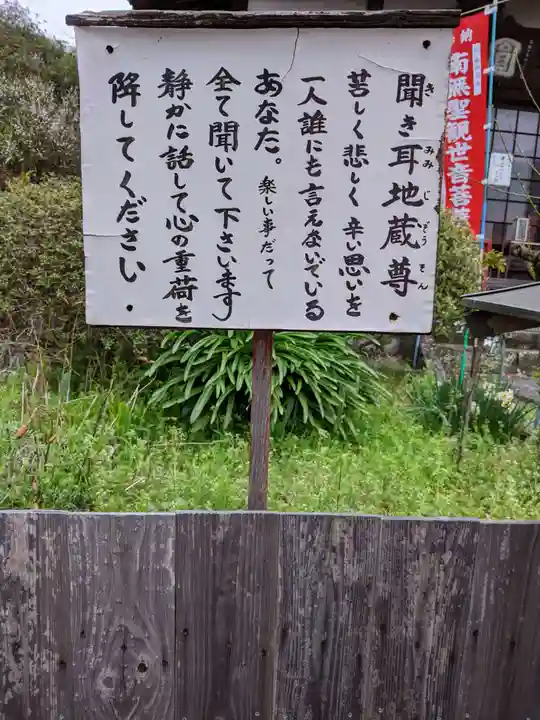 聞き耳地蔵尊
き みみ じ ぞう そん
苦しく悲しく辛い思いを
一人誰にも言えないでいる
あなた。楽しい事だって
全て聞いて下さいます
静かに話して心の重荷を
降してください
南無聖観世音菩
納